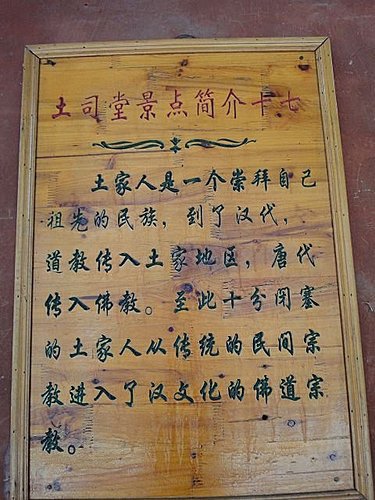 土司堂景点简介十七
土家人是一个崇拜自己
祖先的民族，到了汉代，
道教传入土家地区，唐代
传入佛教。至此十分闭塞
的土家人从传统的民间宗
教进入了汉文化的佛道宗
教。